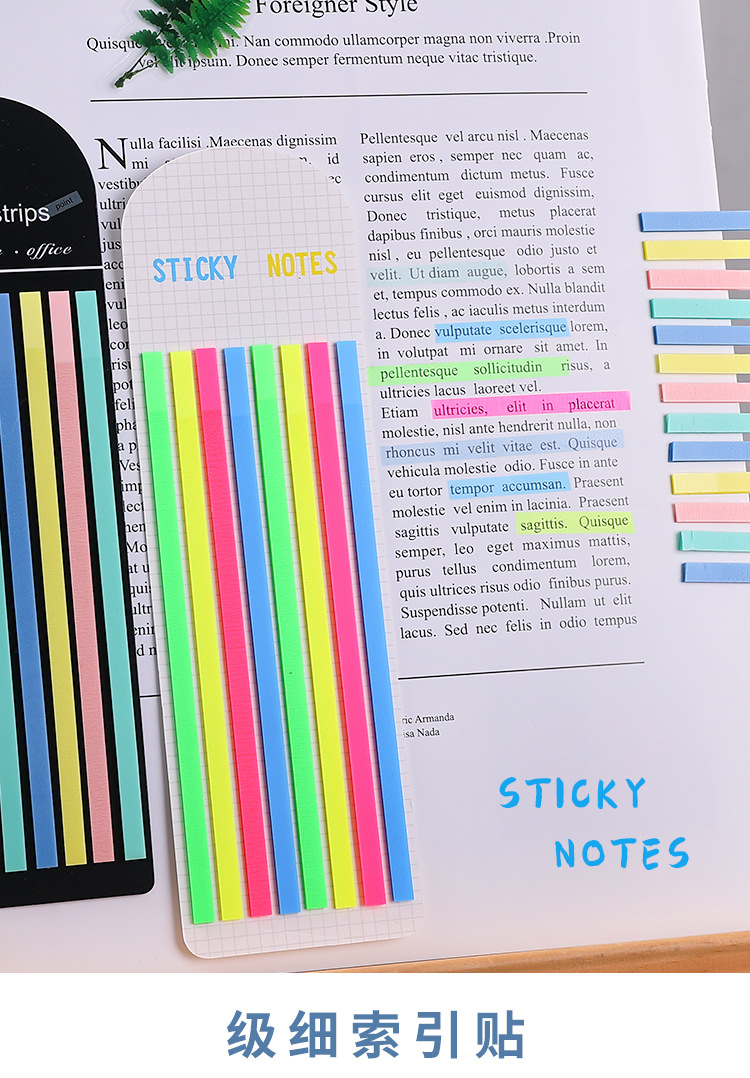 Foreigner Style
Quisque mi. Nan commodo ullamcorper magna non viverra .Proin
vel elit ipsuin. Donee semper fermentum neque vitac tristique.
Nulla facilisi .Maecenas dignissim
mi id
vestibu ec
ultri
vul
jus
acc
eni
vul
leo
con
risu
pot
feli
pha
a p
Ves
imp
lect
hen
Mo
at u
quis
ultr
eni
d n
Pellentesque vel arcu nisl . Maecenas
sapien eros , semper nec quam ac,
condimentum dictum metus. Fusce
cursus elit eget euismod dignissim,
Donec tristique, metus placerat
dapibus finibus , orci mauris molestie
nisl , eu pellentesque odio justo et
velit. Ut diam augue, lobortis a sem
et, tempus commodo ex. Nulla blandit
lectus felis , ac iaculis metus interdum
a. Donec vulputate scelerisque lorem,
in volutpat mi ornare sit amet. In
pellentesque sollicitudin risus, a
ultricies lacus laoreet vel.
Etiam ultricies, elit in placerat
molestie, nisl ante hendrerit nulla, non
rhoncus mi velit vitae est. Quisque
vehicula molestie odio. Fusce in ante
eu tortor tempor accumsan. Praesent
molestie vel enim in lacinia. Praesent
sagittis vulputate sagittis. Quisque
semper, leo eget maximus mattis,
purus tellus condimentum lorem,
quis ultrices risus odio finibus purus.
Suspendisse potenti. Nullam ut elit
lacus. Sed nec felis in odio tempus
ric Armanda
isa Nada
strips point
· office
STICKY NOTES
STICKY
NOTES
级细索引贴